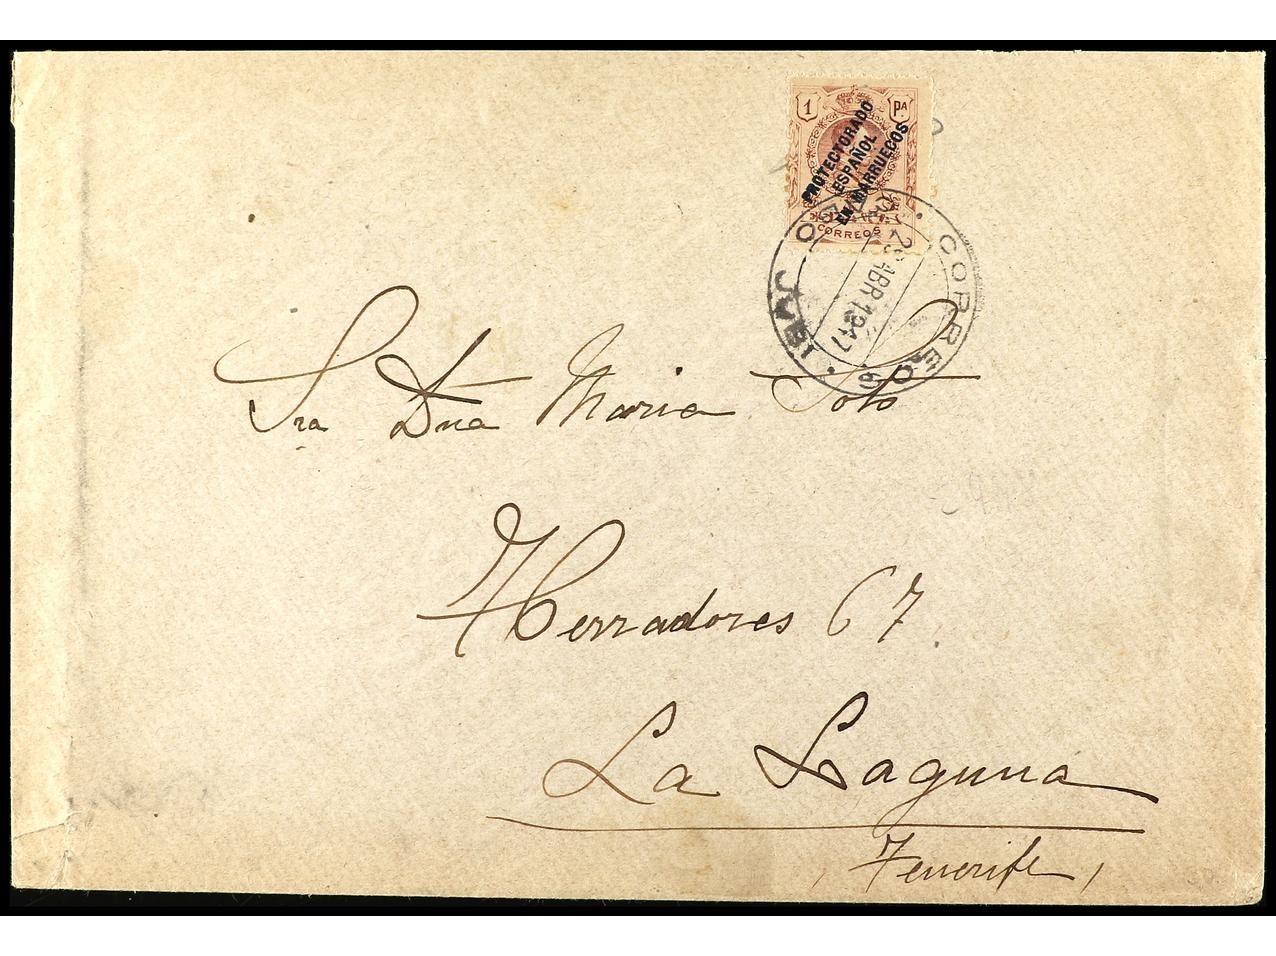 1 PA
PROTECTORADO
ESPAÑOL
EN MARRUECOS
CORREOS
CORREO
29 ABR 1917
Sra Dña Maria Soto
Herradores 67.
La Laguna
Tenerife